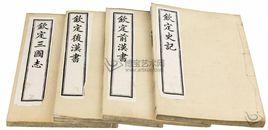 欽定史記
欽定前漢書
欽定後漢書
欽定三國志
博宝艺术网